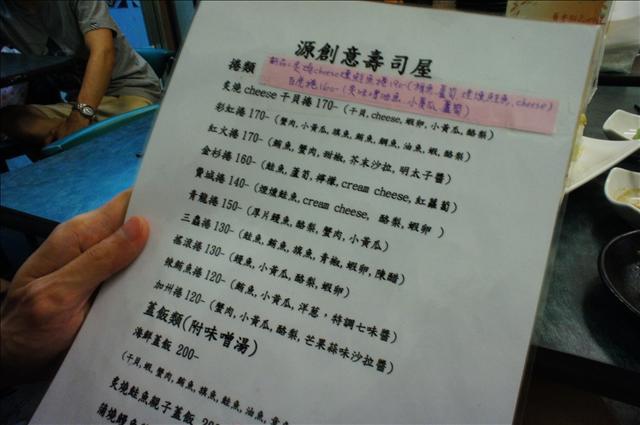 源創意壽司屋
捲類
新品:炙燒cheese燻鮭魚捲190-(鮪魚,蘆筍,煙燻鮭魚,cheese)
百虎捲160-(炙味噌油魚,小黃瓜,蘆筍)
炙燒 cheese 干貝捲 170- (干貝, cheese, 蝦卵, 小黃瓜, 酪梨)
彩虹捲 170- (蟹肉, 小黃瓜, 旗魚, 鮪魚, 鯛魚, 油魚, 蝦, 酪梨)
紅火捲 170- (鮪魚, 蟹肉, 甜椒, 芥末沙拉, 明太子醬)
金杉捲 160- (鮭魚, 蘆筍, 檸檬, cream cheese, 紅蘿蔔)
費城捲 140- (煙燻鮭魚, cream cheese, 酪梨, 蝦卵 )
青龍捲 150- (厚片鰻魚, 酪梨, 蟹肉, 小黃瓜)
三蟲捲 130- (鮭魚, 鮪魚, 旗魚, 青椒, 蝦卵, 陳醋)
搖滾捲 130- (鰻魚, 小黃瓜, 酪梨, 蝦卵)
辣鮪魚捲 120- (鮪魚, 小黃瓜, 洋蔥, 特調七味醬)
加州捲 120- (蟹肉, 小黃瓜, 酪梨, 芒果蒜味沙拉醬)
蓋飯類(附味噌湯)
海鮮蓋飯 200-
(干貝, 蝦, 蟹肉, 鮪魚, 旗魚, 鮭魚, 油魚,
炙燒鮭魚親子蓋飯
蒲燒鰻魚